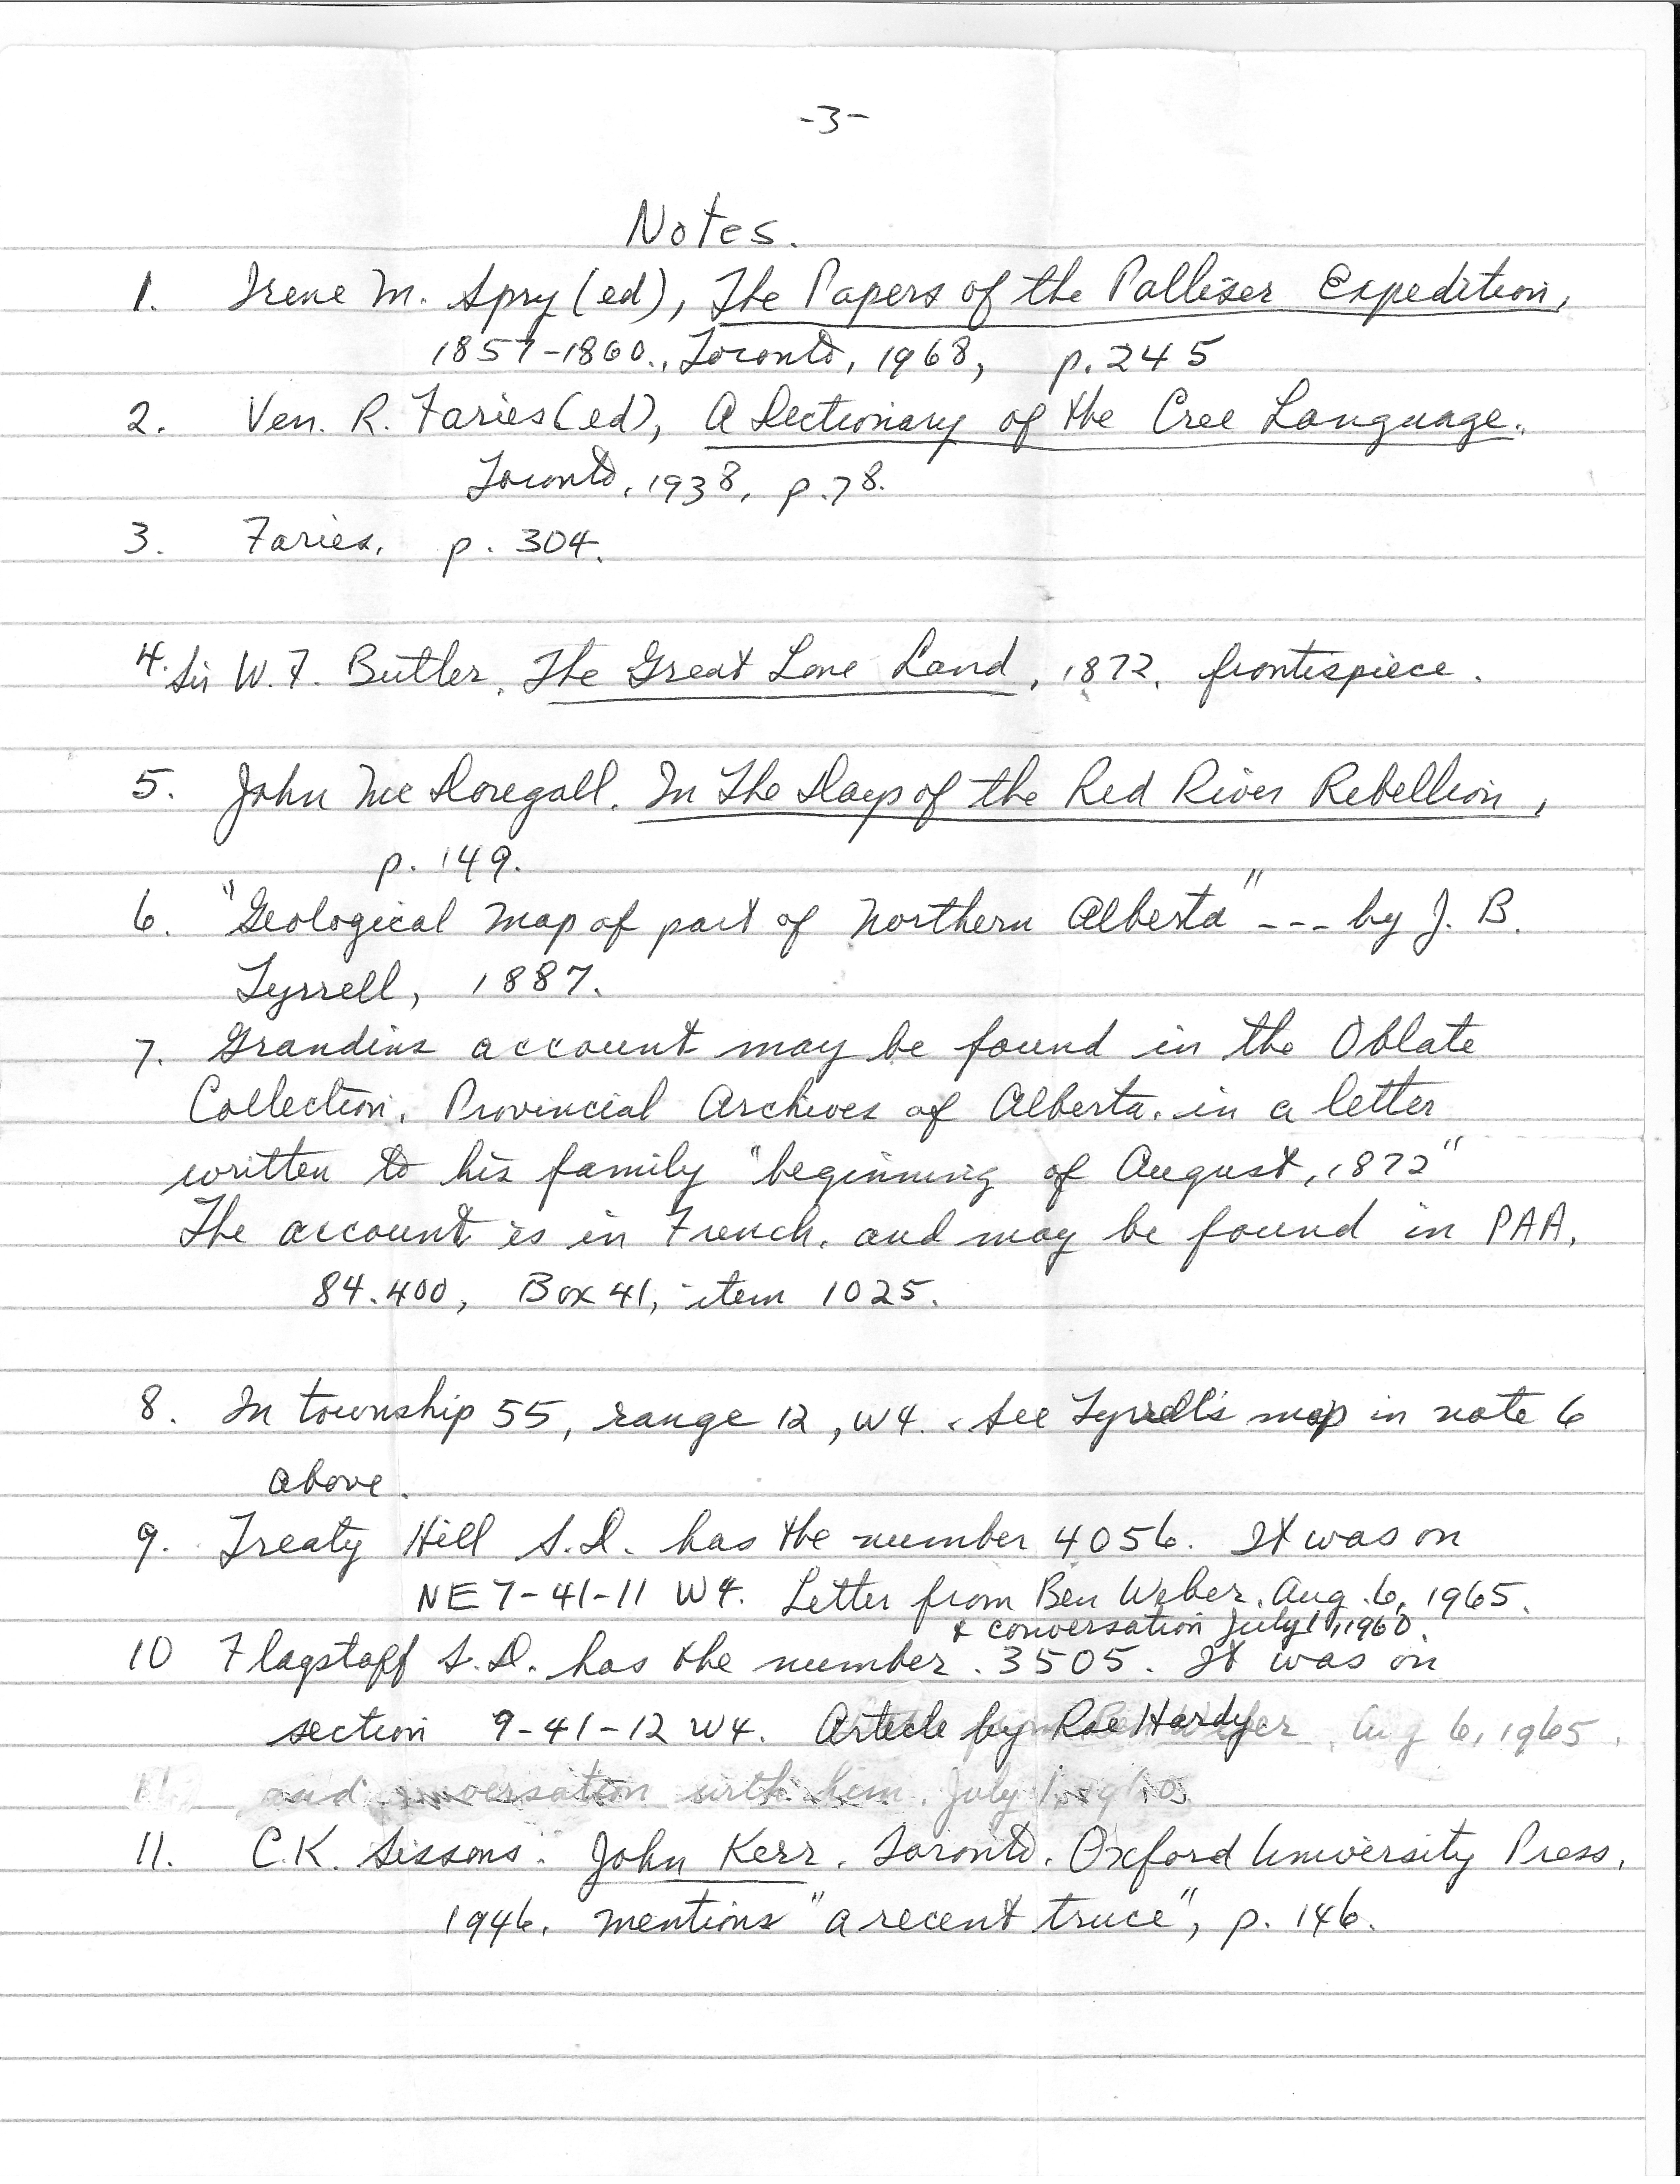 -3-
Notes.
1. Irene M. Spry (ed), The Papers of the Palliser Expedition,
1857-1860., Toronto, 1968, p. 245
2. Ven. R. Faries (ed), A Dictionary of the Cree Language.
Toronto, 1938, p. 78.
3. Faries. p. 304.
4. Sir W. F. Butler. The Great Lone Land, 1872. frontispiece.
5. John McDougall. In The Days of the Red River Rebellion,
p. 149.
6. "Geological Map of part of Northern Alberta" --- by J. B.
Tyrrell, 1887.
7. Grandins account may be found in the Oblate
Collection. Provincial Archives of Alberta. in a letter
written to his family "beginning of August, 1872"
The account is in French. and may be found in PAA.
84.400, Box 41, item 1025.
8. In township 55, range 12, W4. See Tyrrell's map in note 6
above.
9. Treaty Hill S.D. has the number 4056. It was on
NE 7-41-11 W4. Letter from Ben Weber. Aug. 6, 1965.
& conversation July 1, 1960.
10 Flagstaff S.D. has the number 3505. It was on
section 9-41-12 W4. Article by Rae Hardy Aug 6, 1965.
and conversation with him. July 1, 1960
11. C.K. Sissons. John Kerr. Toronto. Oxford University Press,
1946. mentions "a recent truce", p. 146.